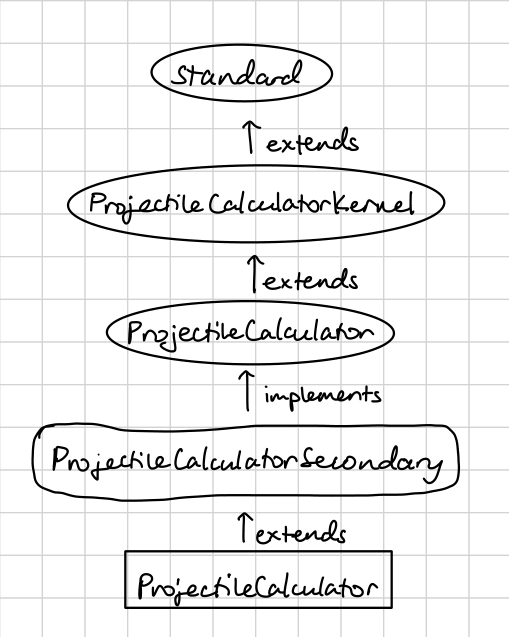 Standard
extends
ProjectileCalculatorKernel
extends
ProjectileCalculator
implements
ProjectileCalculatorSecondary
extends
ProjectileCalculator